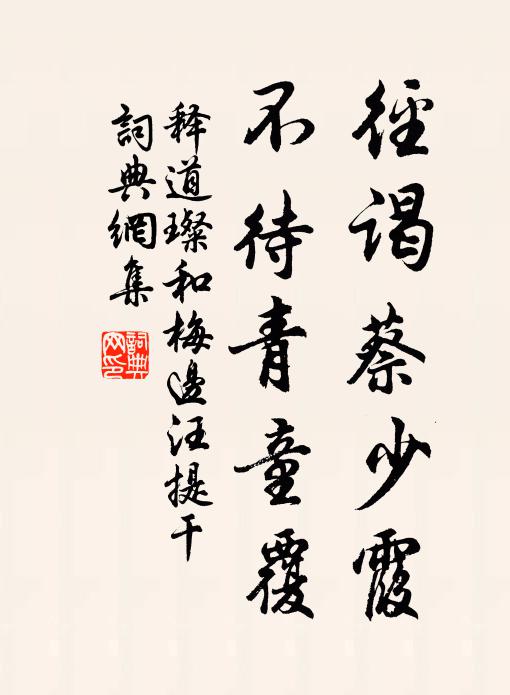 徑谒蔡少霞
不待青童覆
释道璨和梅邊汪提干
詞典網集
詞典網印